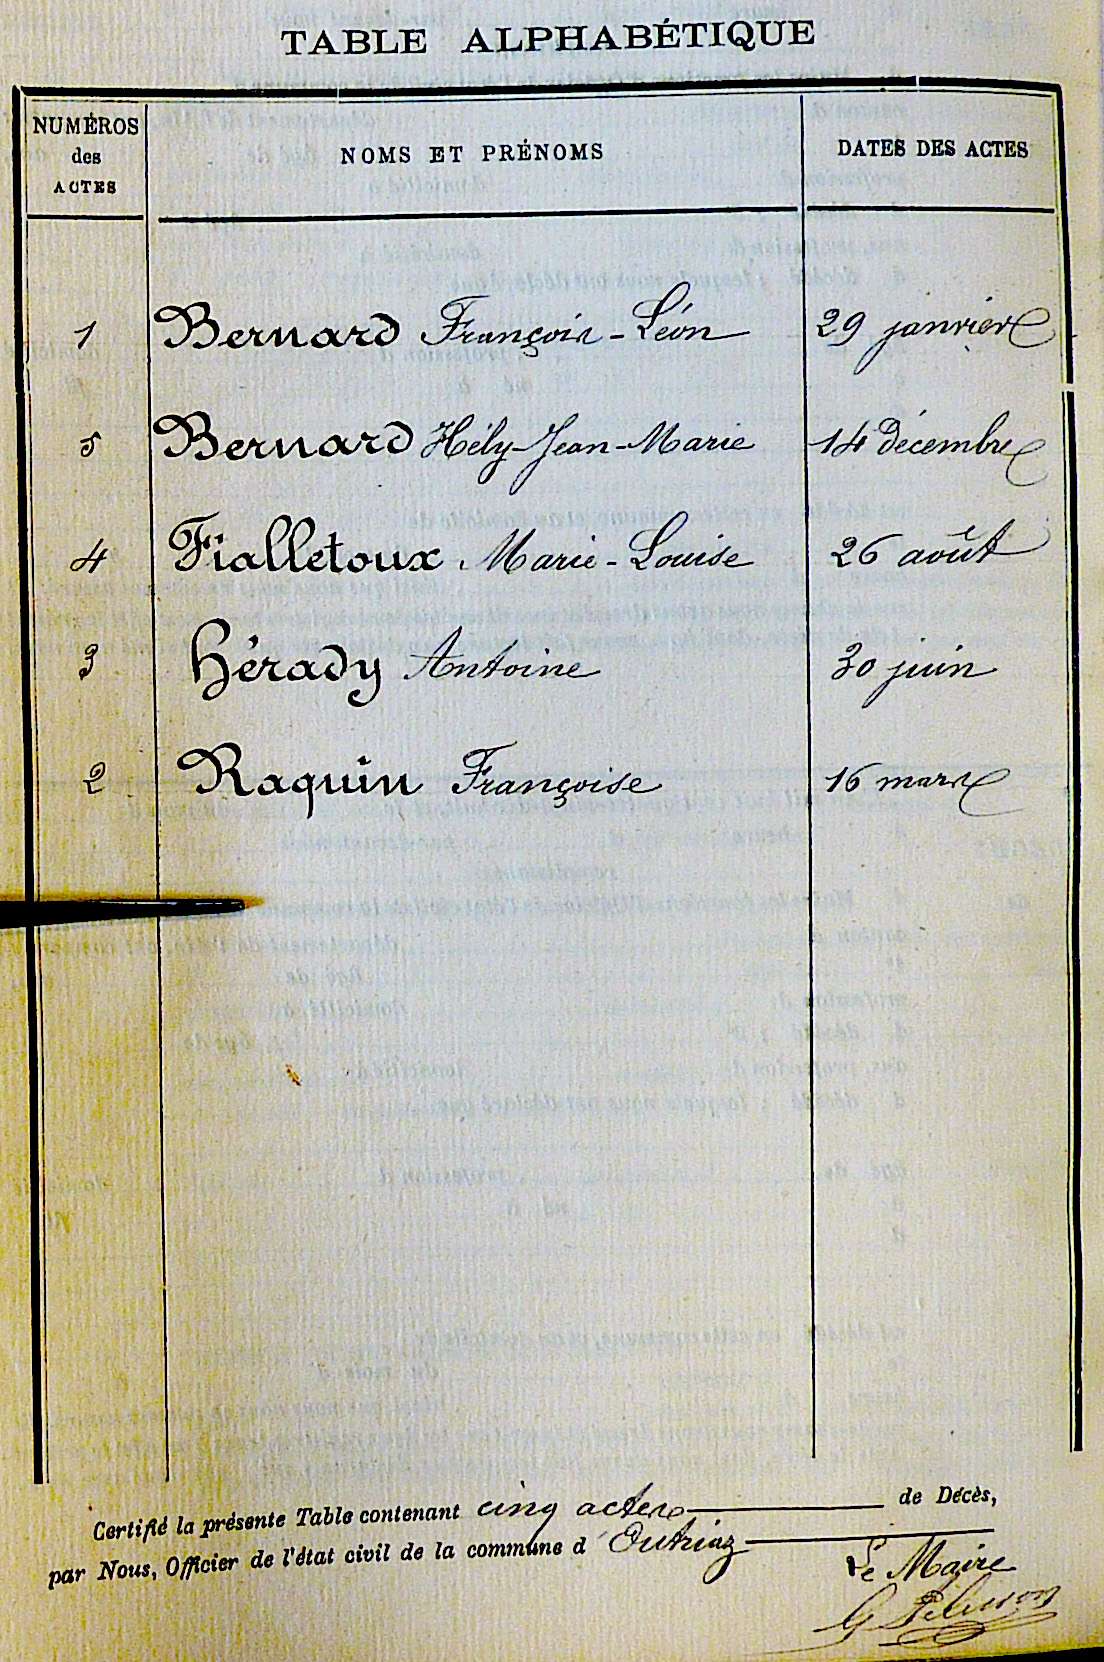 TABLE ALPHABÉTIQUE
NUMÉROS des ACTES NOMS ET PRÉNOMS DATES DES ACTES
1 Bernard François-Léon 29 janvier
5 Bernard Hély-Jean-Marie 14 décembre
4 Fialletoux Marie-Louise 26 août
3 Hérady Antoine 30 juin
2 Raquin Françoise 16 mars
Certifié la présente Table contenant cinq actes de Décès,
par Nous, Officier de l'état civil de la commune d' Outriaz
Le Maire
G